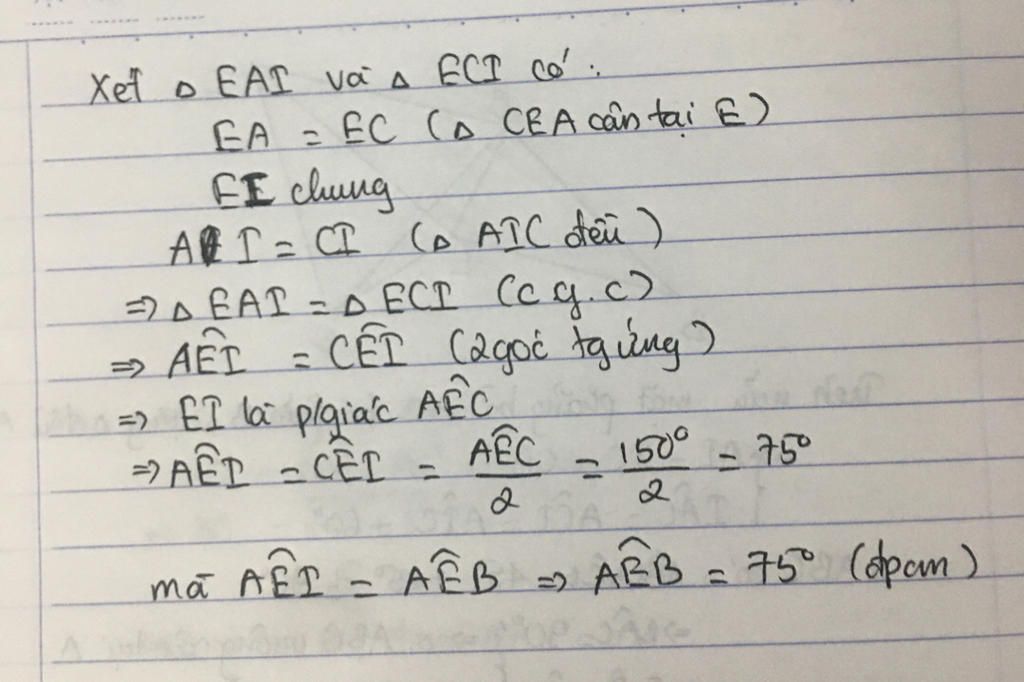 Xét △ EAI và △ ECI có:
EA = EC (△ CEA cân tại E)
EI chung
AI = CI (△ AIC đều)
=> △ EAI = △ ECI (c g.c)
=> AÊI = CÊI (2 góc tg ứng)
=> EI là p/giác AÊC
=> AÊI = CÊI = AÊC/2 = 150°/2 = 75°
mà AÊI = AÊB => AÊB = 75° (đpcm)